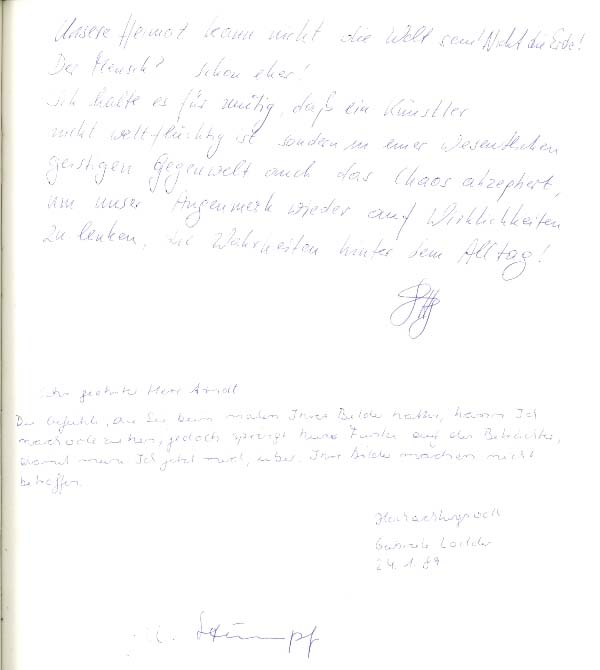 Unsere Heimat kann nicht die Welt sein! Nicht die Erde!
Der Mensch? Schon eher!
Ich halte es für nötig, daß ein Künstler
nicht weltflüchtig ist sondern in einer wesentlichen
geistigen Gegenwelt auch das Chaos akzeptiert,
um unser Augenmerk wieder auf Wirklichkeiten
zu lenken, die Wahrheiten hinter dem Alltag!
Sehr geehrter Herr Arndt
Die Gefühle, die Sie beim malen Ihrer Bilder hatten, kann Ich
nachvollziehen, jedoch springt keine Funke auf den Betrachter,
Ich jetzt mal, aber Ihre Bilder machen nicht
betroffen.
Hochachtungsvoll
Gabriele
24.1.89
Stumpf